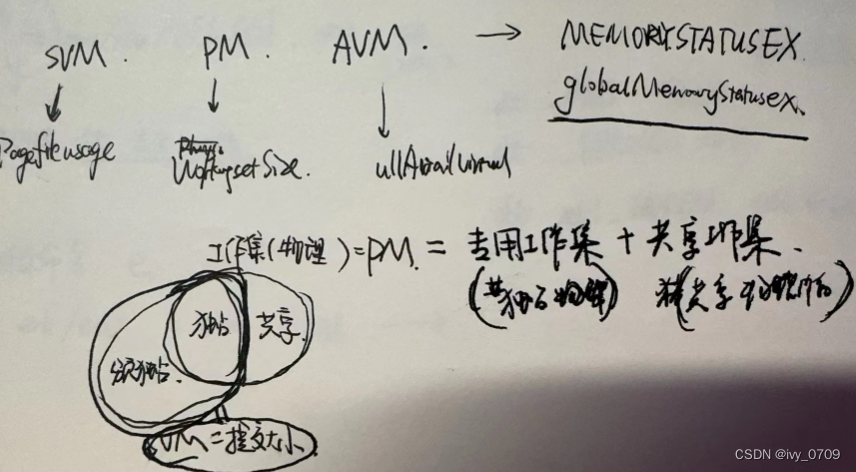 SVM. PM. AVM. → MEMORYSTATUSEX.
globalMemoryStatusex.
Pagefileusage WorkingsetSize. ullAvailVirtual
工作集(物理)=PM. = 专用工作集 + 共享工作集.
独占 共享.
VM=提交大小
CSDN @ivy_0709